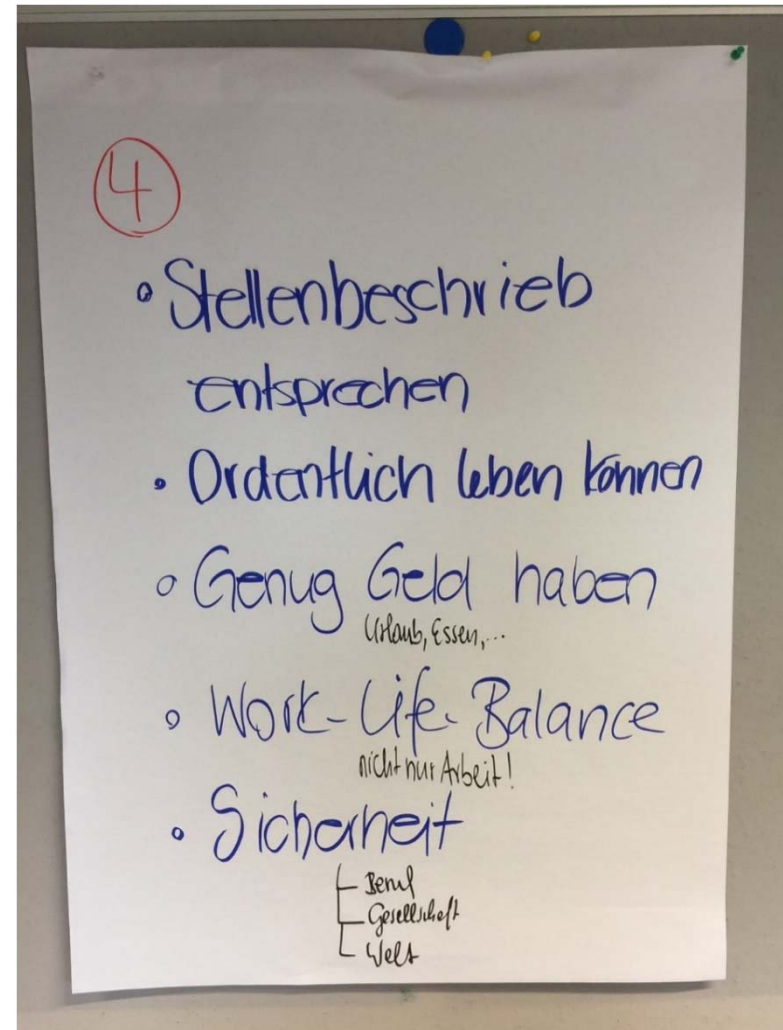 4
• Stellenbeschrieb
entsprechen
• Ordentlich leben können
• Genug Geld haben
Urlaub, Essen,...
• Work-Life-Balance
nicht nur Arbeit!
• Sicherheit
Beruf
Gesellschaft
Welt